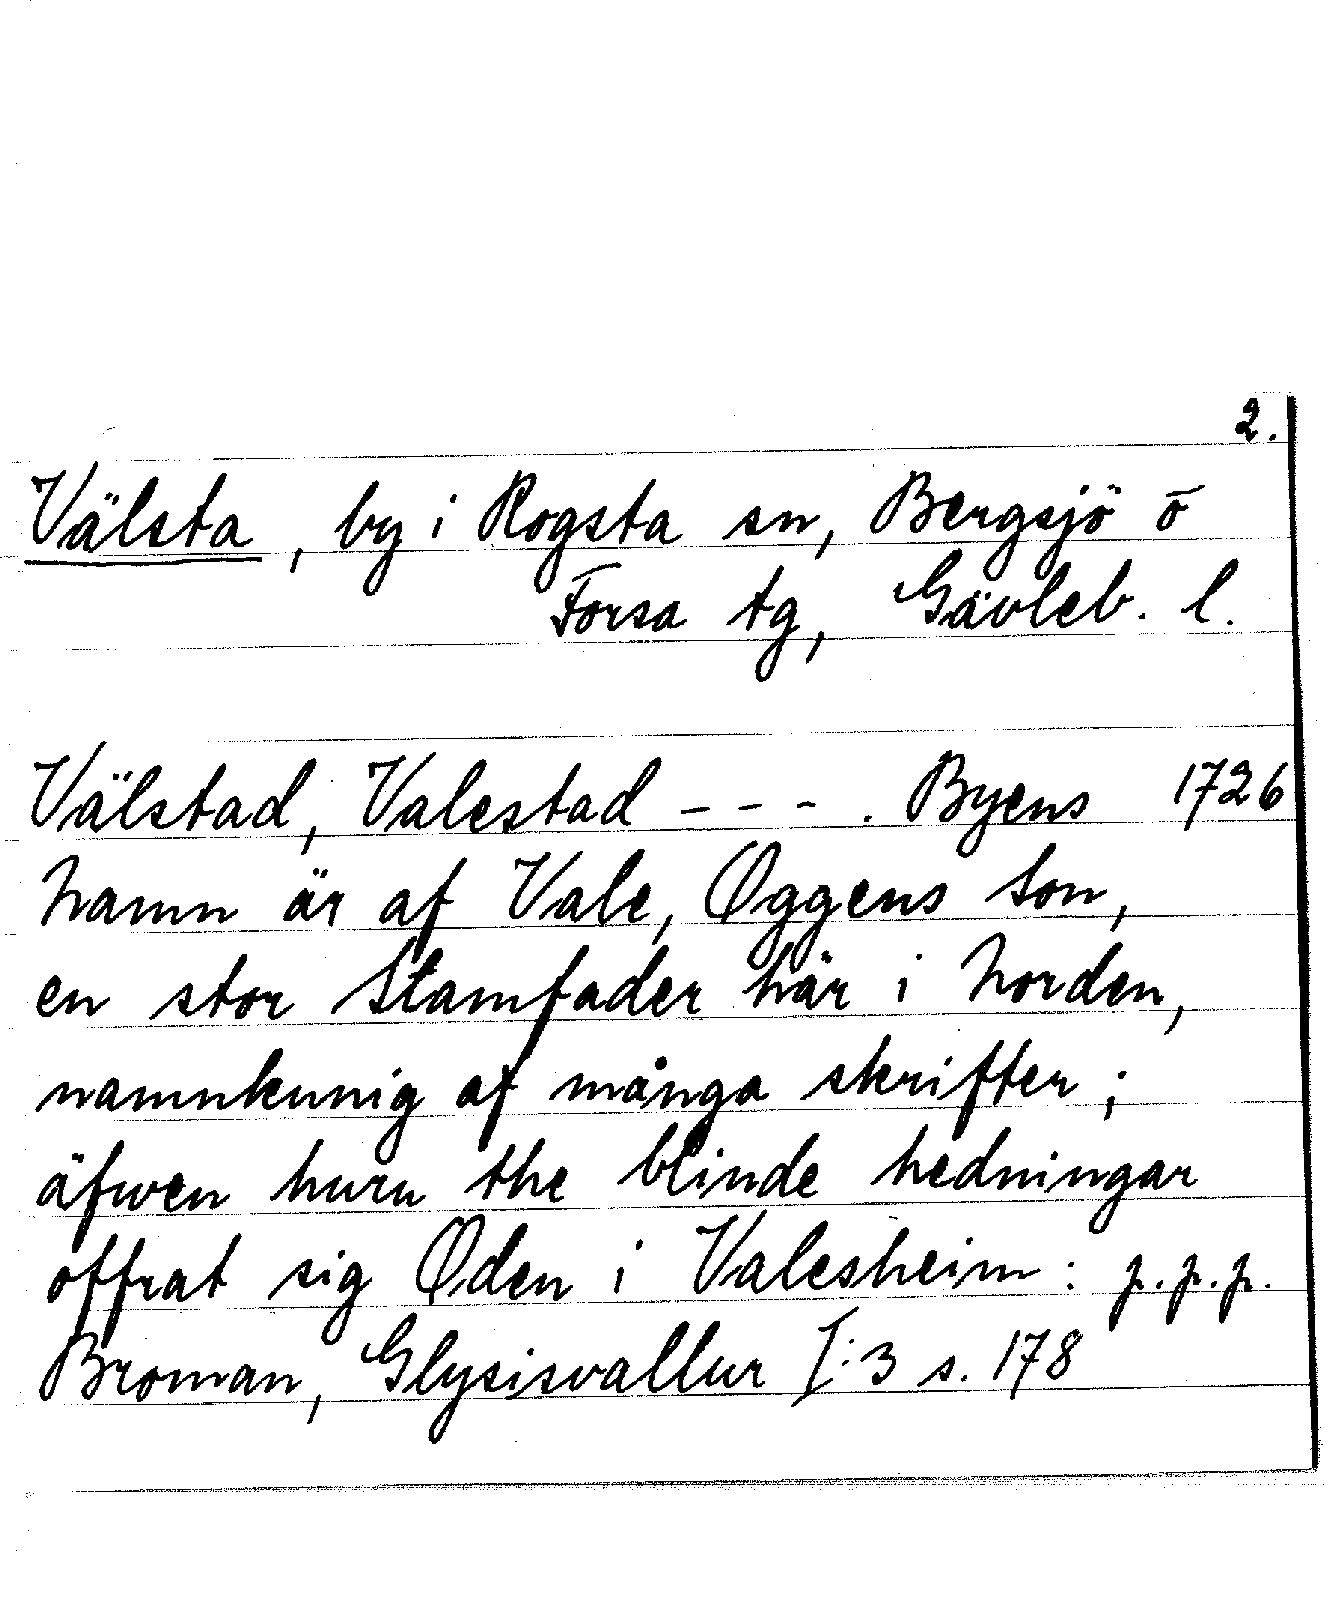 2.
Välsta, by i Rogsta sn, Bergsjö o
Forsa tg, Gävleb. l.
Välstad, Valestad - - - . Byens 1726
Namn är af Vale, Oggens Son,
en stor Stamfader här i Norden,
namnkunig af många skrifter;
äfwen huru the blinde hedningar
offrat sig Oden i Valesheim: p.p.p.
Broman, Glysisvallur I:3 s. 178